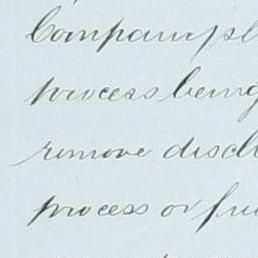 Company's pl
process being
remove discl
process or fu